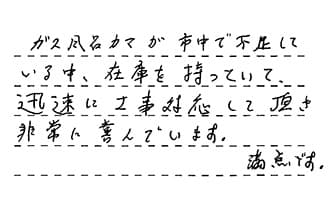 ガス風呂カマが市中で不足して
いる中、在庫を持っていて、
迅速に工事対応して頂き
非常に喜んでいます。
満点です。